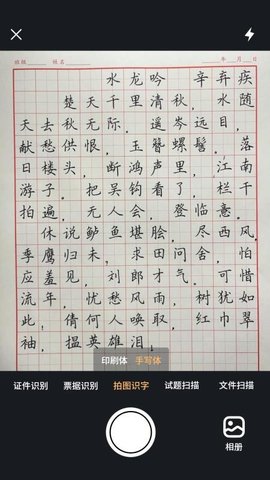 班级 姓名 年 月 日
水龙吟 辛弃疾
楚天千里清秋，水随
天去秋无际。遥岑远目，
献愁供恨，玉簪螺髻。落
日楼头，断鸿声里，江南
游子。把吴钩看了，栏干
拍遍。无人会，登临意。
休说鲈鱼堪脍，尽西风，
季鹰归未，求田问舍，怕
应羞见，刘郎才气。可惜
流年，忧愁风雨，树犹如
此，倩何人唤取，红巾翠
袖，揾英雄泪！
印刷体 手写体
证件识别 票据识别 拍图识字 试题扫描 文件扫描
相册